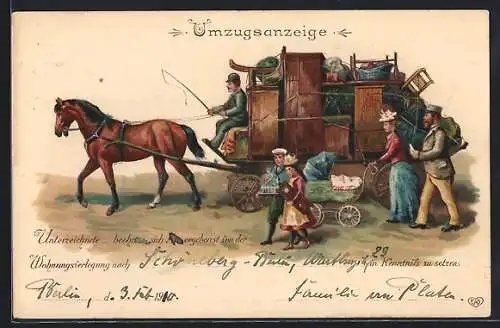 Umzugsanzeige
Unterzeichnete beehren sich Sie ergebenst von der
Wohnungsverlegung nach Schöneberg-Berlin, 29 in Kenntnis zu setzen.
Berlin, d. 3. Feb 1910. Familie von Platen.